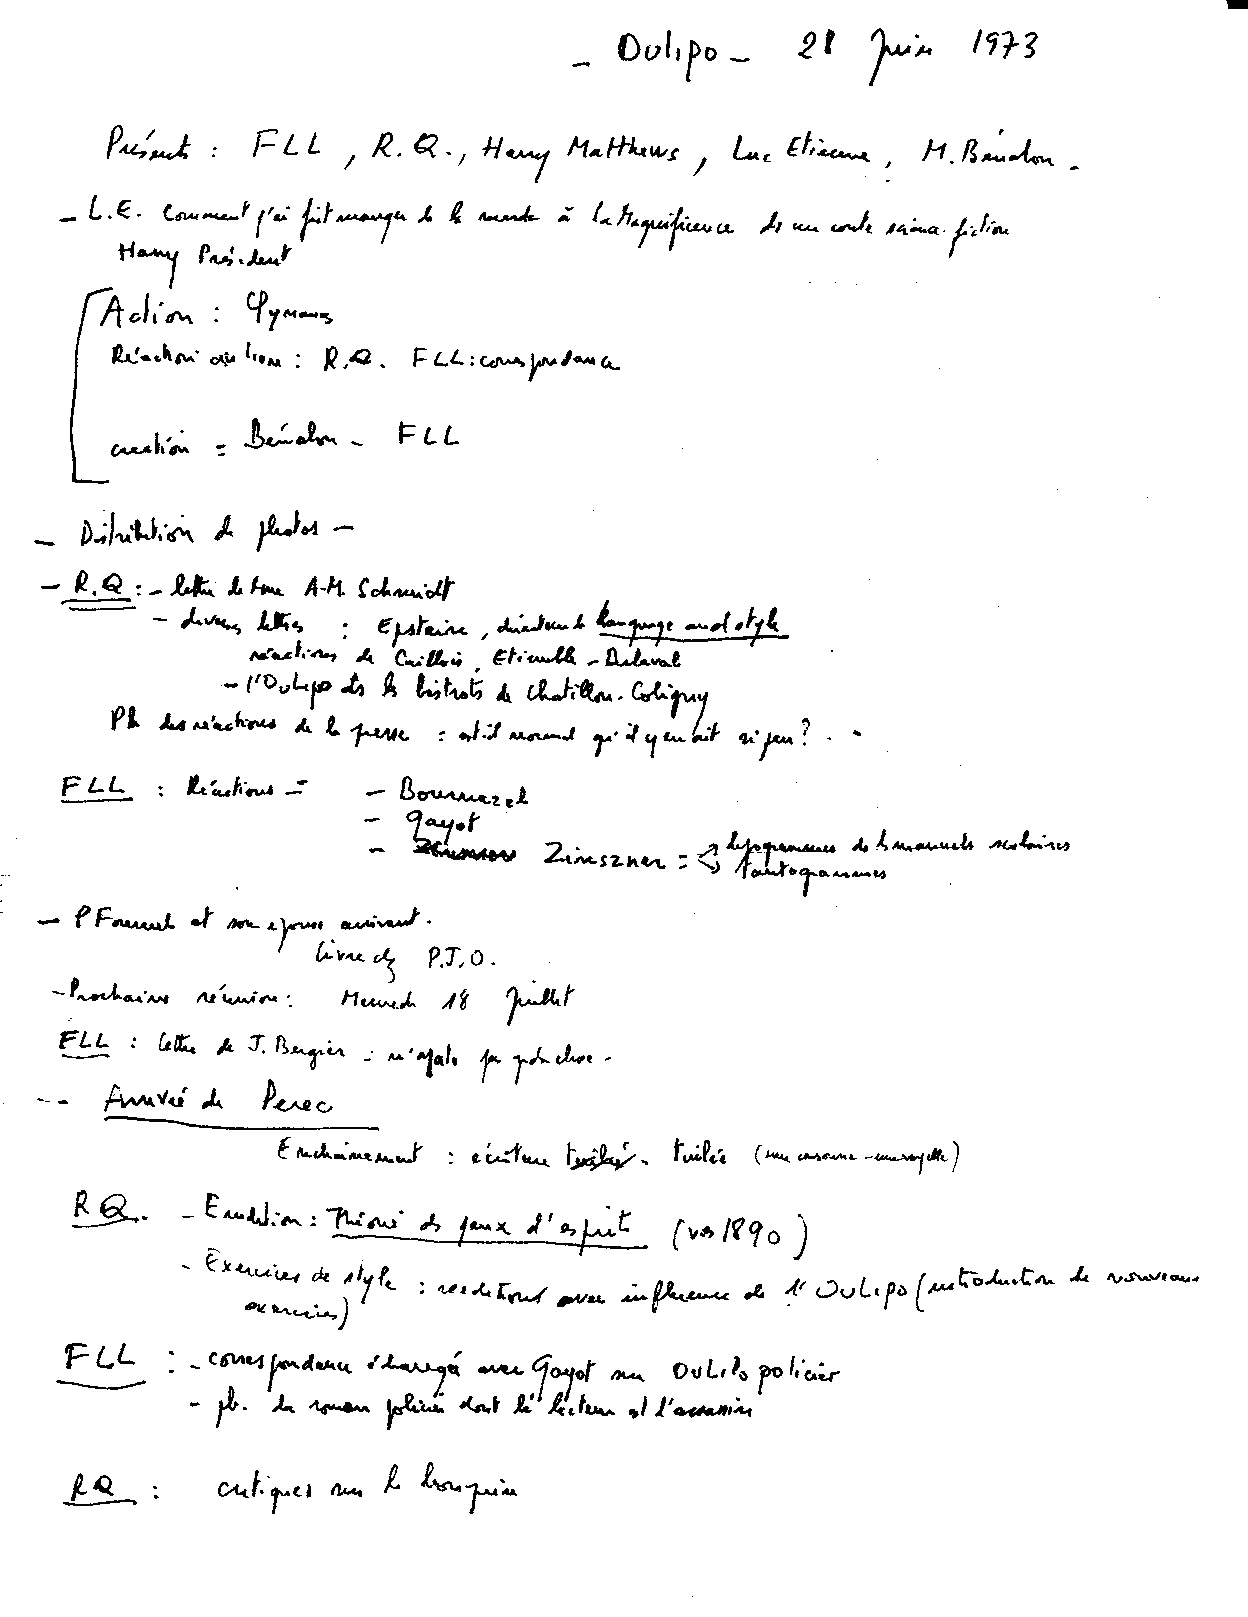 - Oulipo - 28 Juin 1973
Présents : FLL, R.Q., Harry Matthews, Luc Etienne, M. Bénabou.
- L.E. comment j'ai fait manger de la merde à la Magnificence ds un conte science-fiction
Harry Président
Action :
Réaction au livre : R.Q. FLL : correspondance
création = Bénabou - FLL
- Distribution de photos -
- R.Q : - lettre de Mme A-M. Schmidt
- diverses lettres : Epstaine, directeur de language and style
réactions de Caillois, Etiemble - Belaval
- l'OuLipo ds les bistrots de Chatillon-Coligny
Pb des réactions de la presse : est-il normal qu'il y en ait si peu ? . -
FLL : Réactions = - Bournazel
- Gayot
- Zinszner = lipogrammes de ls manuels scolaires
tautogrammes
- P Fournel et son épouse arrivent.
livre chz P.J.O.
- Prochaine réunion : Mercredi 18 Juillet
FLL : lettre de J. Bergier : n'apporte pas grd chose -
-- Arrivée de Perec
Enchainement : écriture - tuilée (une consonne - une voyelle)
RQ. - Erudition : Théorie des jeux d'esprit (vers 1890)
- Exercices de style : réédition avec influence de l'OuLipo (introduction de nouveaux
exercices)
FLL : - correspondance échangée avec Gayot sur OuLiPo policier
- pb. du roman policier dont le lecteur est l'assassin
RQ : critiques sur le bouquin